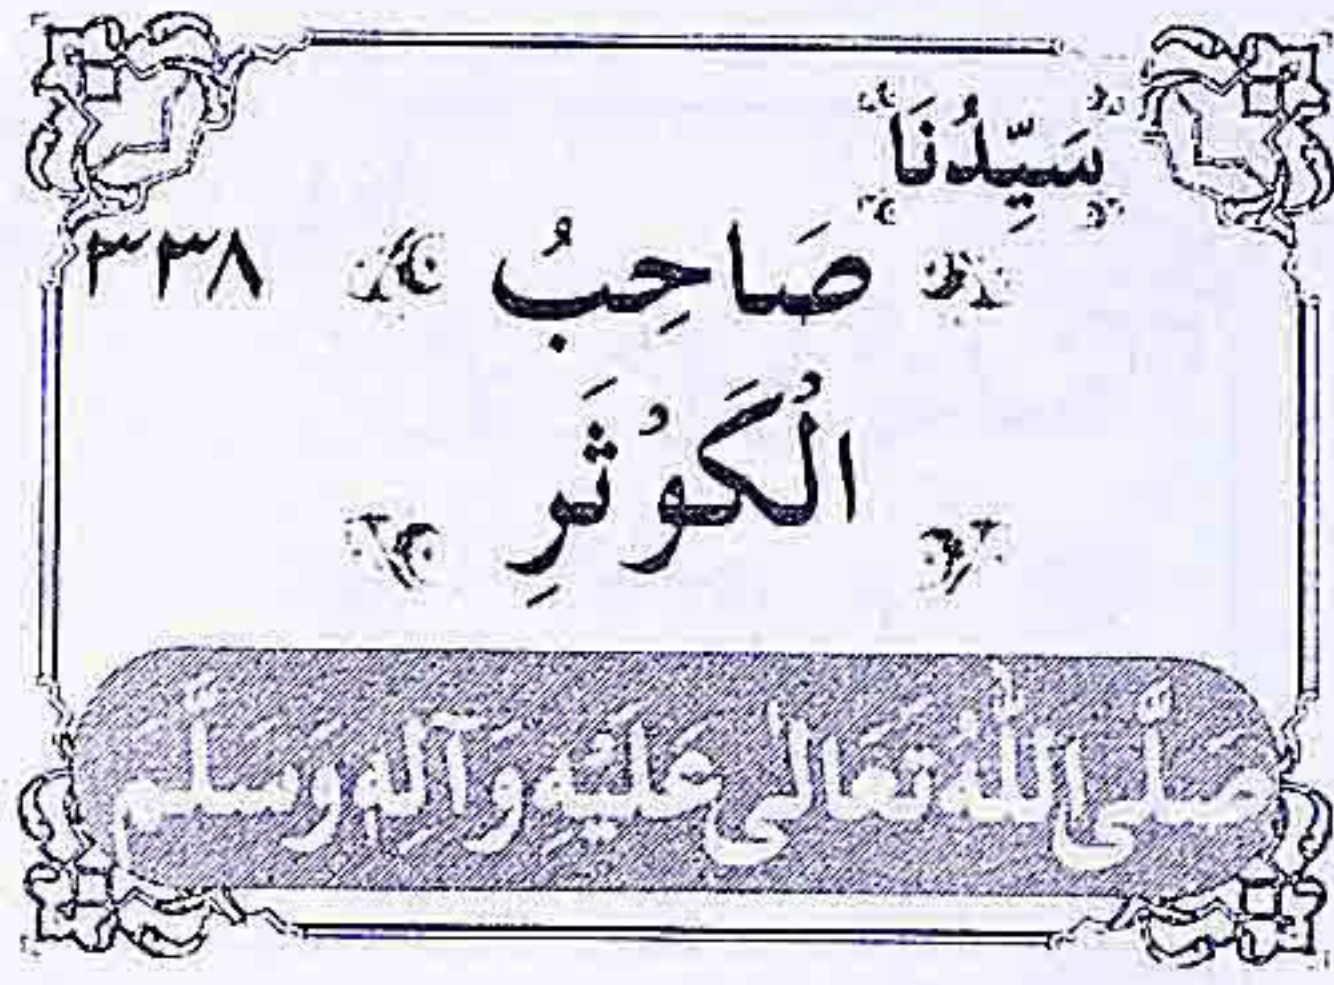 سَيِّدُنَا
صَاحِبُ ٣٣٨
الْكَوْثَرِ
صَلَّى اللّٰهُ تَعَالٰى عَلَيْهِ وَآلِهٖ وَسَلَّمَ